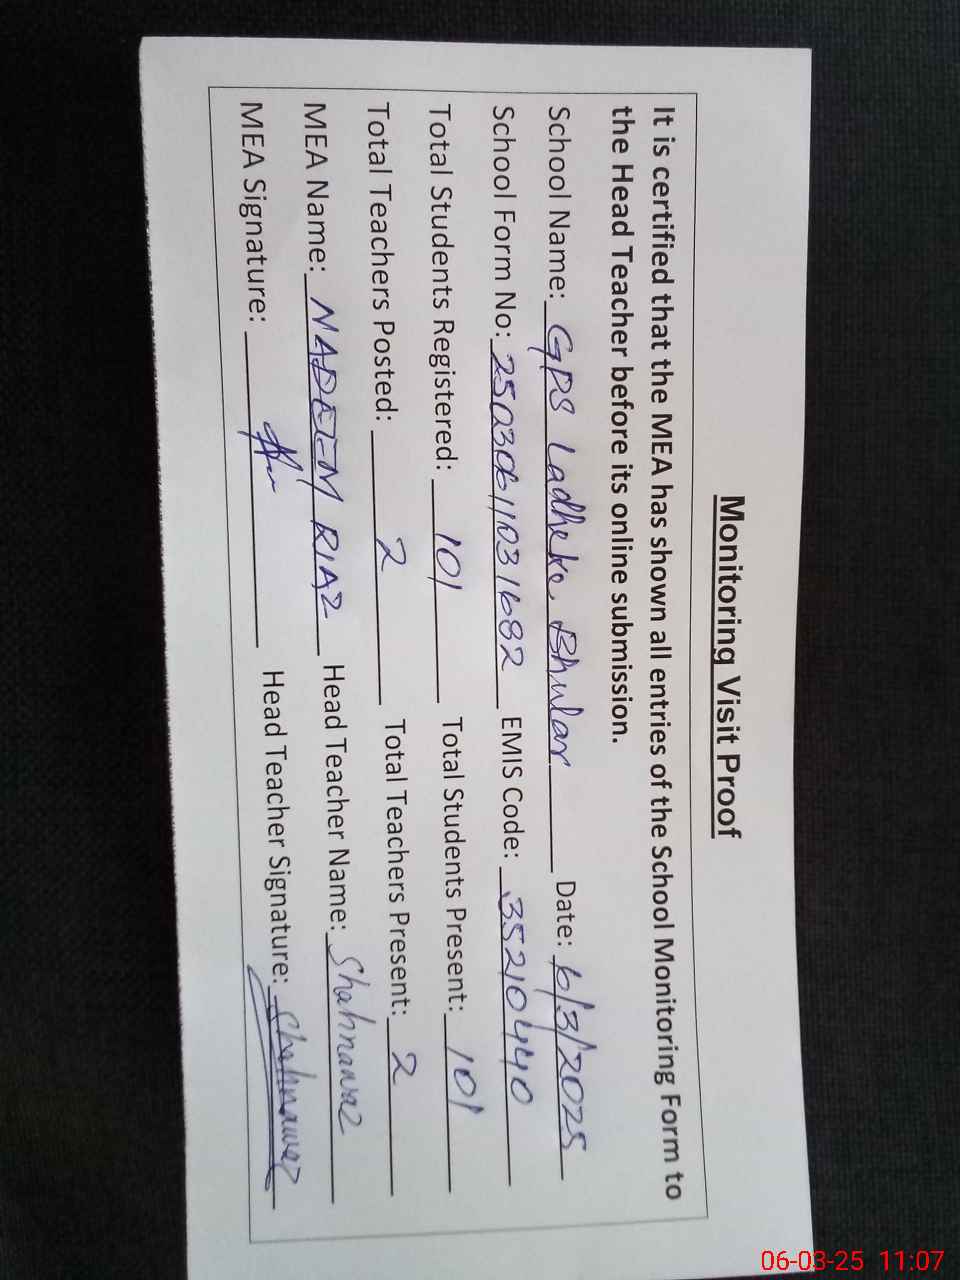 Monitoring Visit Proof
It is certified that the MEA has shown all entries of the School Monitoring Form to
the Head Teacher before its online submission.
School Name: GPS Ladheke Bhular Date: 6/3/2025
School Form No: 2503061031682 EMIS Code: 35210440
Total Students Registered: 101 Total Students Present: 101
Total Teachers Posted: 2 Total Teachers Present: 2
MEA Name: NADEEM RIAZ Head Teacher Name: Shahnawaz
MEA Signature: Head Teacher Signature: Shahnawaz
06-03-25 11:07